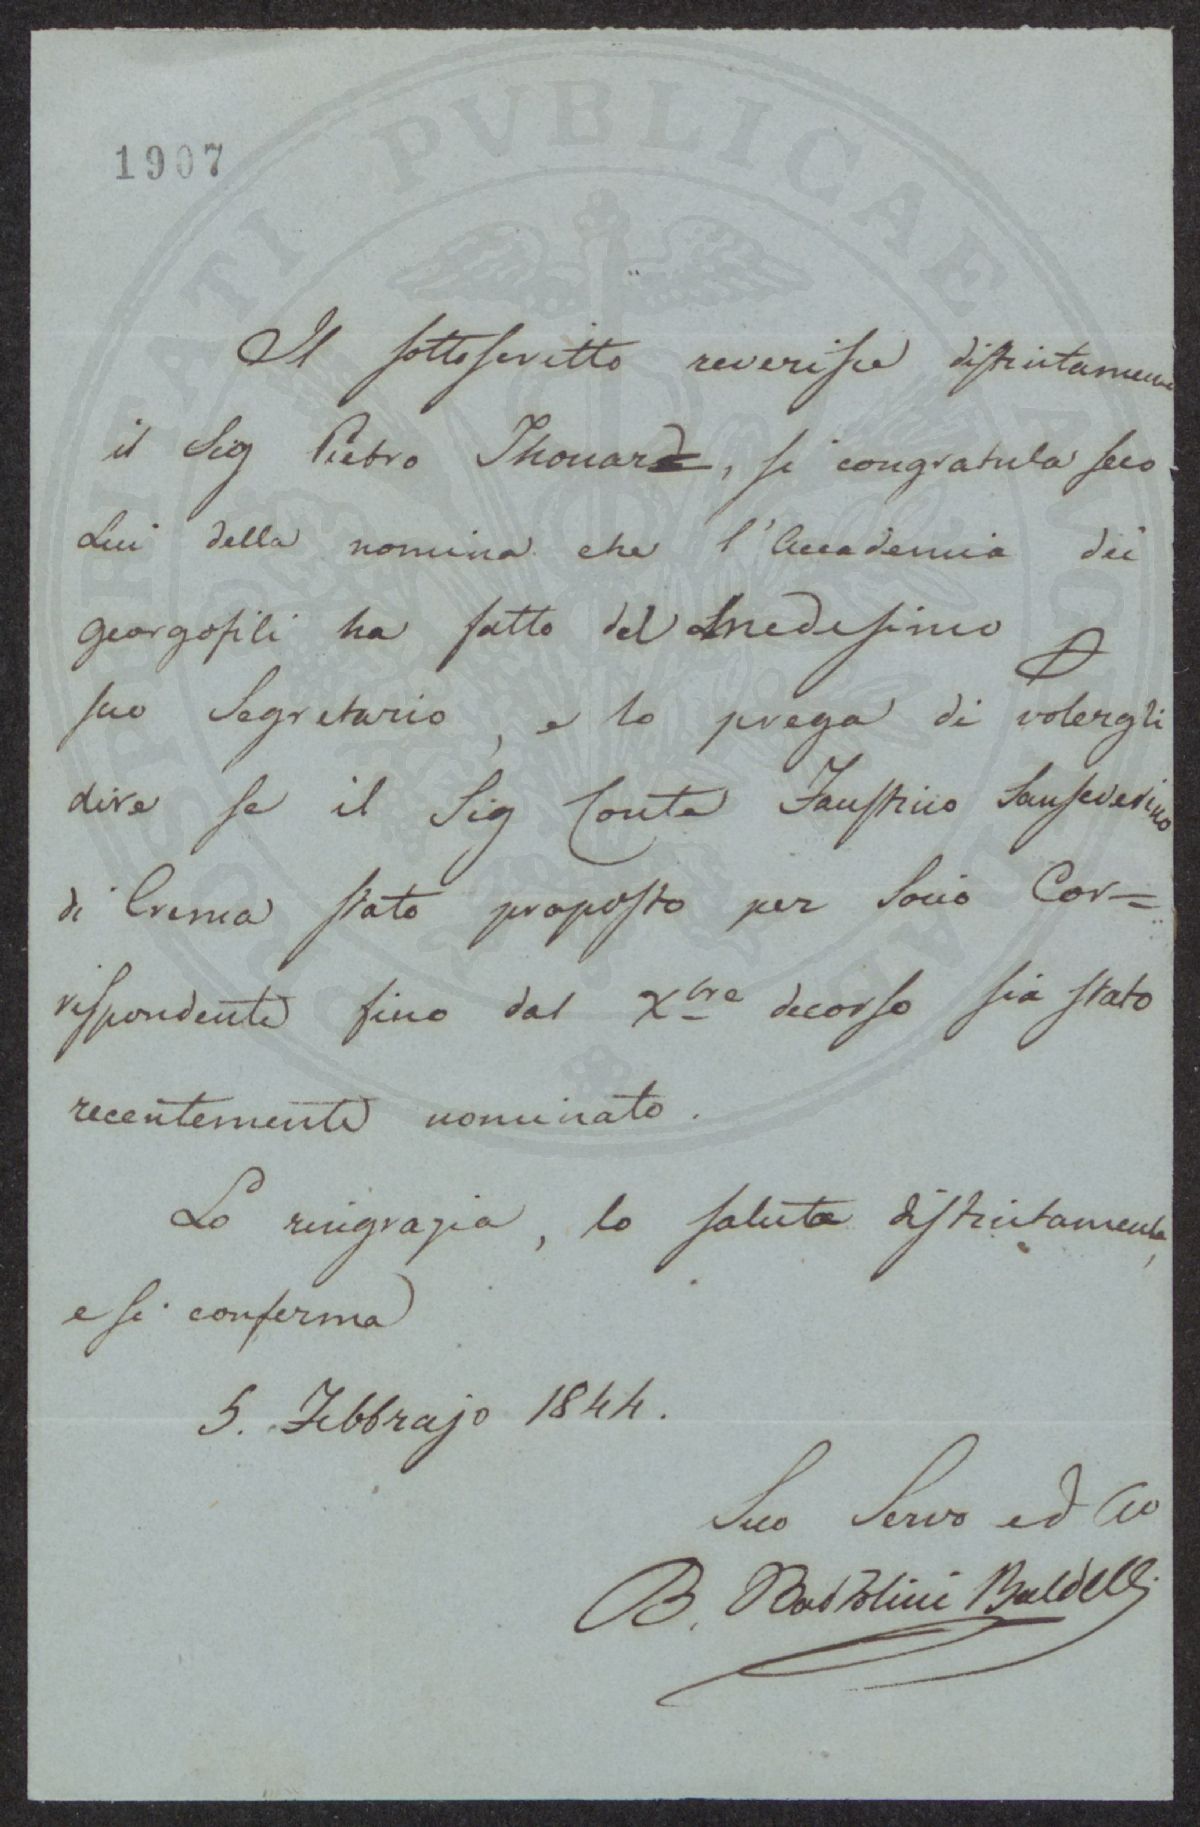 1907
Il sottoscritto reverisce distintamente
il Sig Pietro Thouar, si congratula seco
Lui della nomina che l'Accademia dei
georgofili ha fatto del Medesimo
suo Segretario, e lo prega di volergli
dire se il Sig Conte Faustino Sanseverino
di Crema stato proposto per Socio Cor=
rispondente fino dal Xbre decorso sia stato
recentemente nominato.
Lo ringrazia, lo saluta distintamente,
e si conferma
5. Febbrajo 1844.
Suo Servo ed
B. Bartolini Baldelli